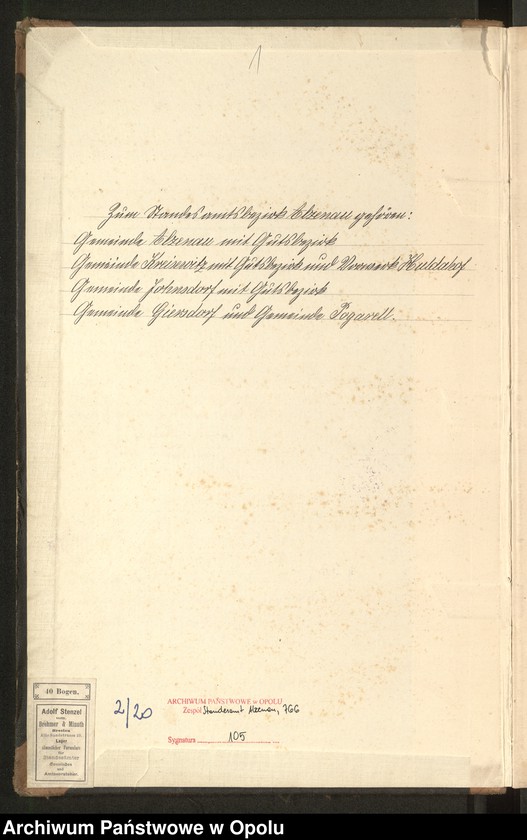 1
Zum Standesamtsbezirk Alzenau gehören:
Gemeinde Alzenau mit Gutsbezirk
Gemeinde Kreiwitz mit Gutsbezirk und Vorwerk Haldahof
Gemeinde Johnsdorf mit Gutsbezirk
Gemeinde Giersdorf und Gemeinde Pogarell.
40 Bogen.
Adolf Stenzel
vorm.
Brehmer & Minuth
Breslau
Lager
Formulare
für
Standesämter
und
Amtsvorsteher.
2/20
ARCHIWUM PAŃSTWOWE w OPOLU
Zespół Standesamt Alzenau, 766
Sygnatura 105
Archiwum Państwowe w Opolu